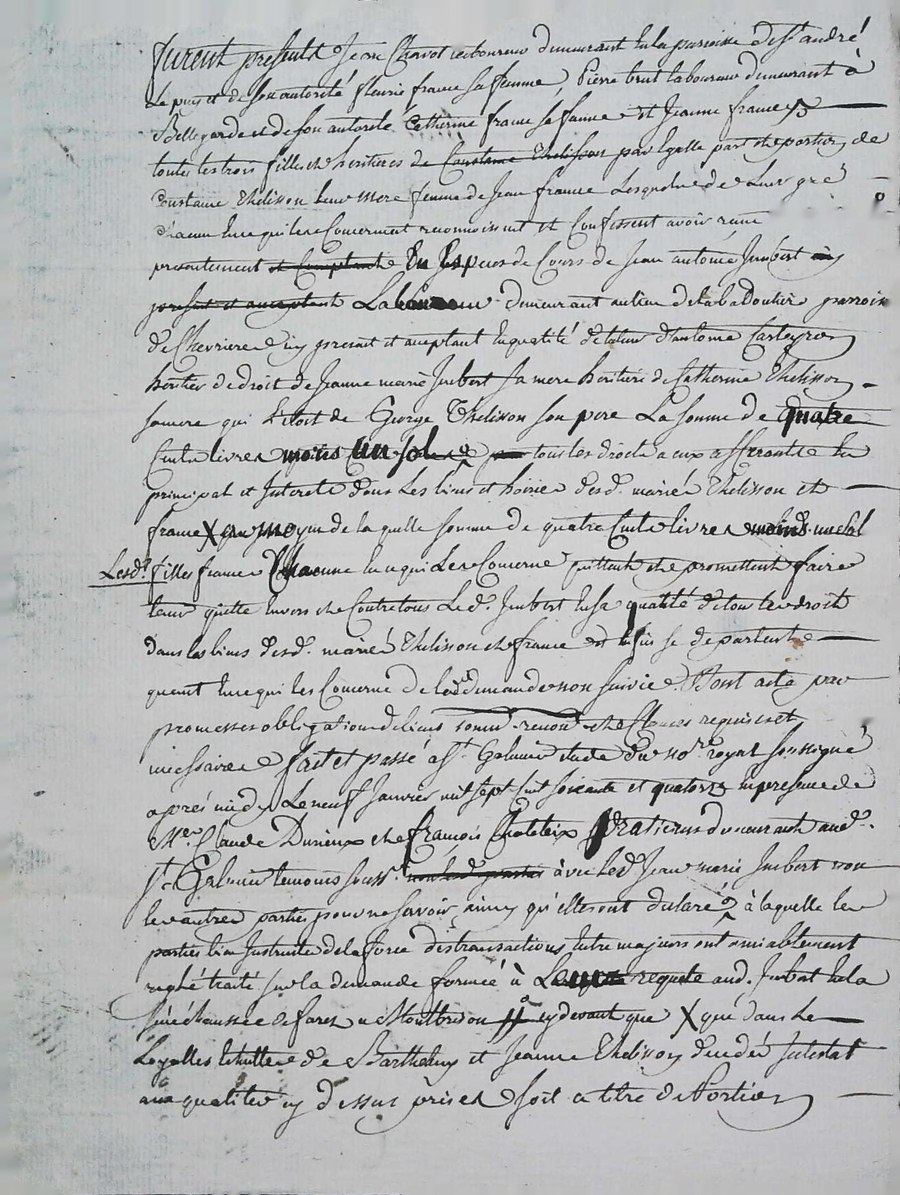 furent presents Jean Chavot laboureur demeurant en la paroisse de st andré
le puy et de son autorité fleurie france sa femme, Pierre brut laboureur demeurant à
Bellegarde et de son autorité Catherine france sa femme et Jeanne france
toutes les trois filles et heritieres de Constance Thelisson par egalle part et portion de
Constance Thelisson leur mere femme de Jean france Lesquels de Leur gré
chacun en ce qui les Concernent reconnoissent et Confessent avoir reçu
presentement et Comptant En Especes de Cours de Jean antoine Imbert
present et acceptant Laboureur demeurant au lieu de la badouliere parroisse
de Chevriere icy present et acceptant en qualité de tuteur d'antoine Carteyron
heritier de droit de Jeanne marie Imbert sa mere heritiere de Catherine Thelisson
qui L'etoit de George Thelisson son pere La somme de quatre
Cents livres moins un sol tous les droits a eux afferants en
principal et Interets dans Les biens et hoirie desd. mariés Thelisson et
france X de la quelle somme de quatre Cents livres moins un sol
Lesd. filles france Chacune en ce qui Les Concerne quittent et promettent faire
tenir quitte Envers et Contre tous Led. Imbert en sa qualité de tous les droits
dans les biens desd. mariés Thelisson et france et enfin se departent
quant en ce qui les Concerne de la demande non suivie Dont acte par
promesses obligation de biens soum. renon. et Clauses requises et
necessaires fait et passé a st. Galmier etude du no.re royal soussigné
après midy Le neuf Janvier mil sept Cent soixante et quatorze en presence de
Me. Claude Durieux et françois Chateix praticiens demeurant aud.
st. Galmier temoins souss. avec led. Jean marie Imbert non
les autres parties pour ne savoir ainsy qu'elles ont declaré à laquelle les
parties bien Instruites de la force des transactions Entre majeurs ont amiablement
reglé traité sur la demande formée à La requete aud. Imbert en la
sénéchaussée de forez a Montbrison cy devant que X que dans Le
de Barthelemy et Jeanne Thelisson decedés Intestat
aux qualites cy dessus prises soit a titre de Portion